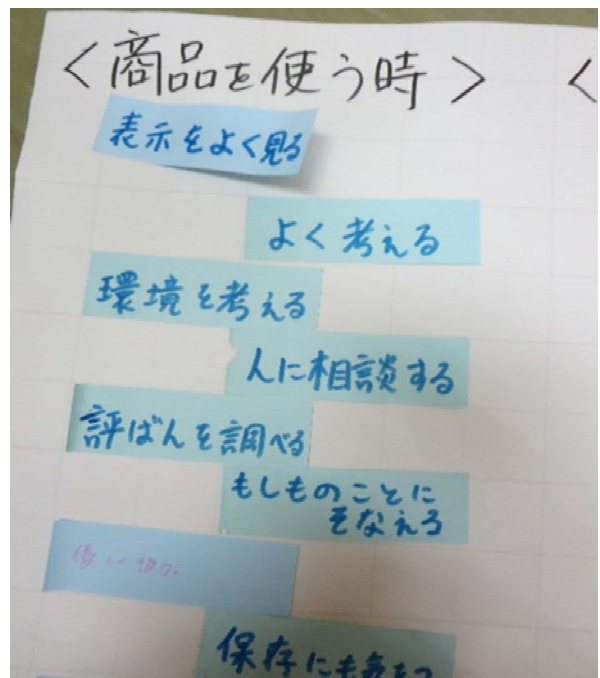 <商品を使う時> <
表示をよく見る
よく考える
環境を考える
人に相談する
評ばんを調べる
もしものことに
そなえる
優しく扱う。
保存にも気をつ